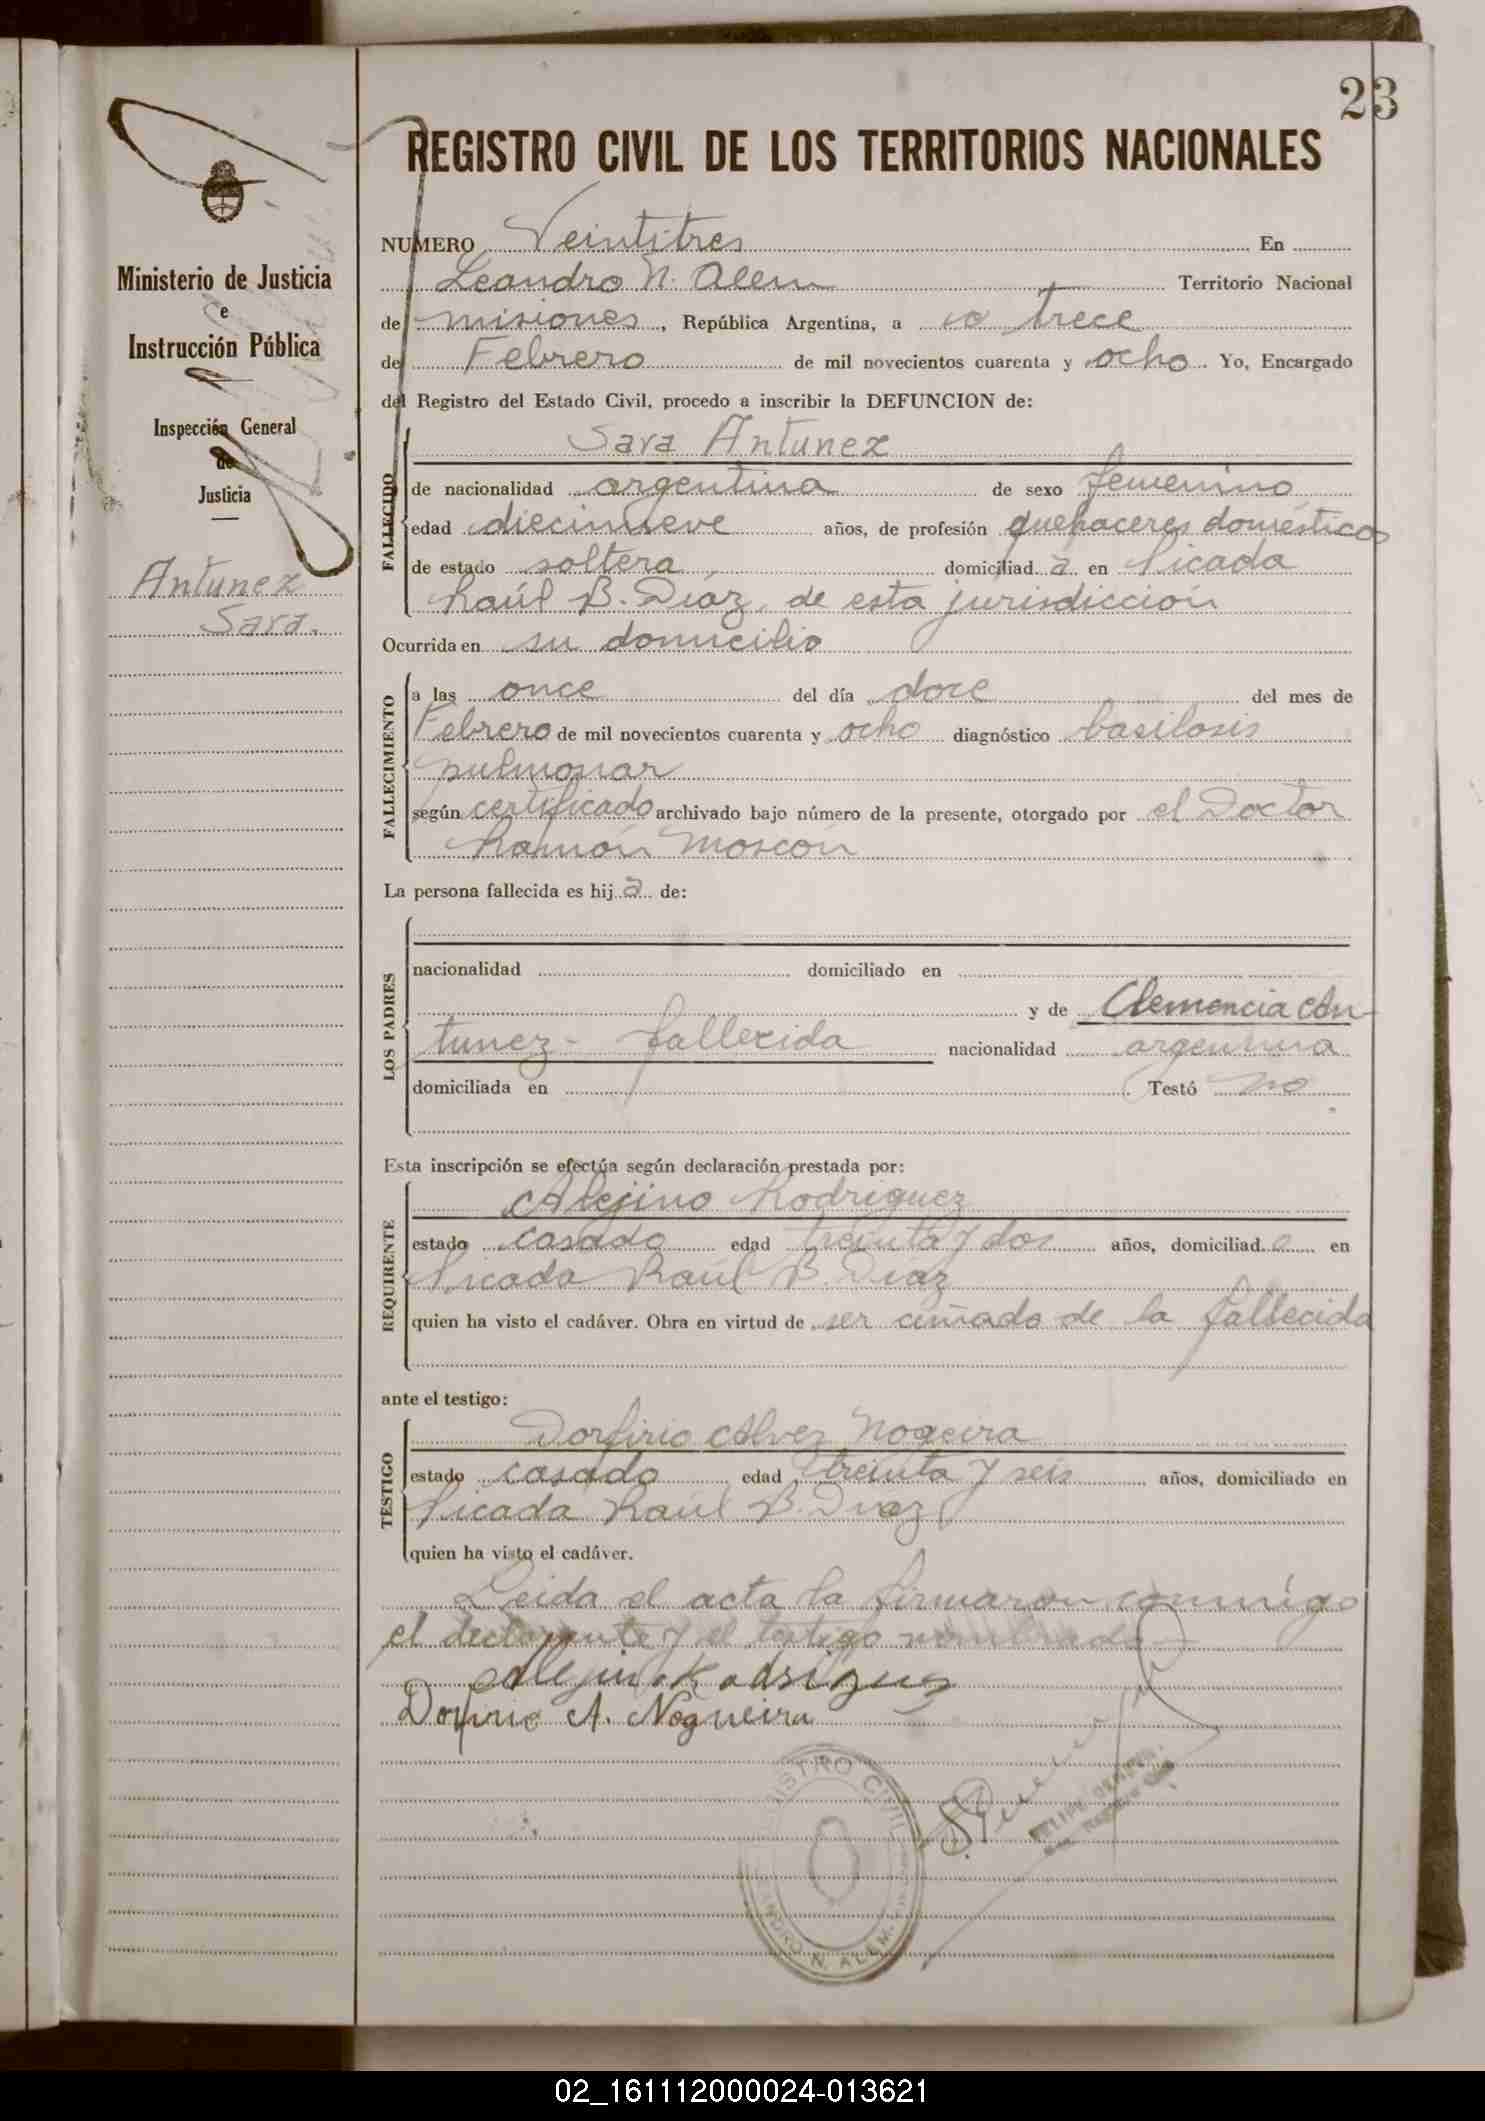 23
REGISTRO CIVIL DE LOS TERRITORIOS NACIONALES
Ministerio de Justicia
e
Instrucción Pública
Inspección General
de
Justicia
Antunez
Sara.
NUMERO Veintitres En
Leandro N. Alem Territorio Nacional
de misiones, República Argentina, a trece
de Febrero de mil novecientos cuarenta y ocho. Yo, Encargado
del Registro del Estado Civil, procedo a inscribir la DEFUNCION de:
Sara Antunez
FALLECIDO
de nacionalidad argentina de sexo femenino
edad diecinueve años, de profesión quehaceres domésticos
de estado soltera, domiciliad a en Picada
Raúl B. Díaz, de esta jurisdicción
Ocurrida en su domicilio
FALLECIMIENTO
a las once del día doce del mes de
Febrero de mil novecientos cuarenta y ocho diagnóstico basilosis
pulmonar
según certificado archivado bajo número de la presente, otorgado por el Doctor
Ramón Moscón
La persona fallecida es hij a de:
LOS PADRES
nacionalidad domiciliado en
y de Clemencia An-
tunez - fallecida nacionalidad argentina
domiciliada en Testó no
Esta inscripción se efectúa según declaración prestada por:
REQUIRENTE
Alejino Rodriguez
estado casado edad treinta y dos años, domiciliad o en
Picada Raúl B. Diaz
quien ha visto el cadáver. Obra en virtud de ser cuñado de la fallecida
ante el testigo:
TESTIGO
Dorfirio Alvez Nogeira
estado casado edad treinta y seis años, domiciliado en
Picada Raúl B. Diaz
quien ha visto el cadáver.
Leida el acta la firmaron conmigo
el declarante y el testigo nombrado-
Alejino Rodriguez
Dorfirio A. Nogueira
REGISTRO CIVIL
LEANDRO N. ALEM
FELIPE
02_161112000024-013621